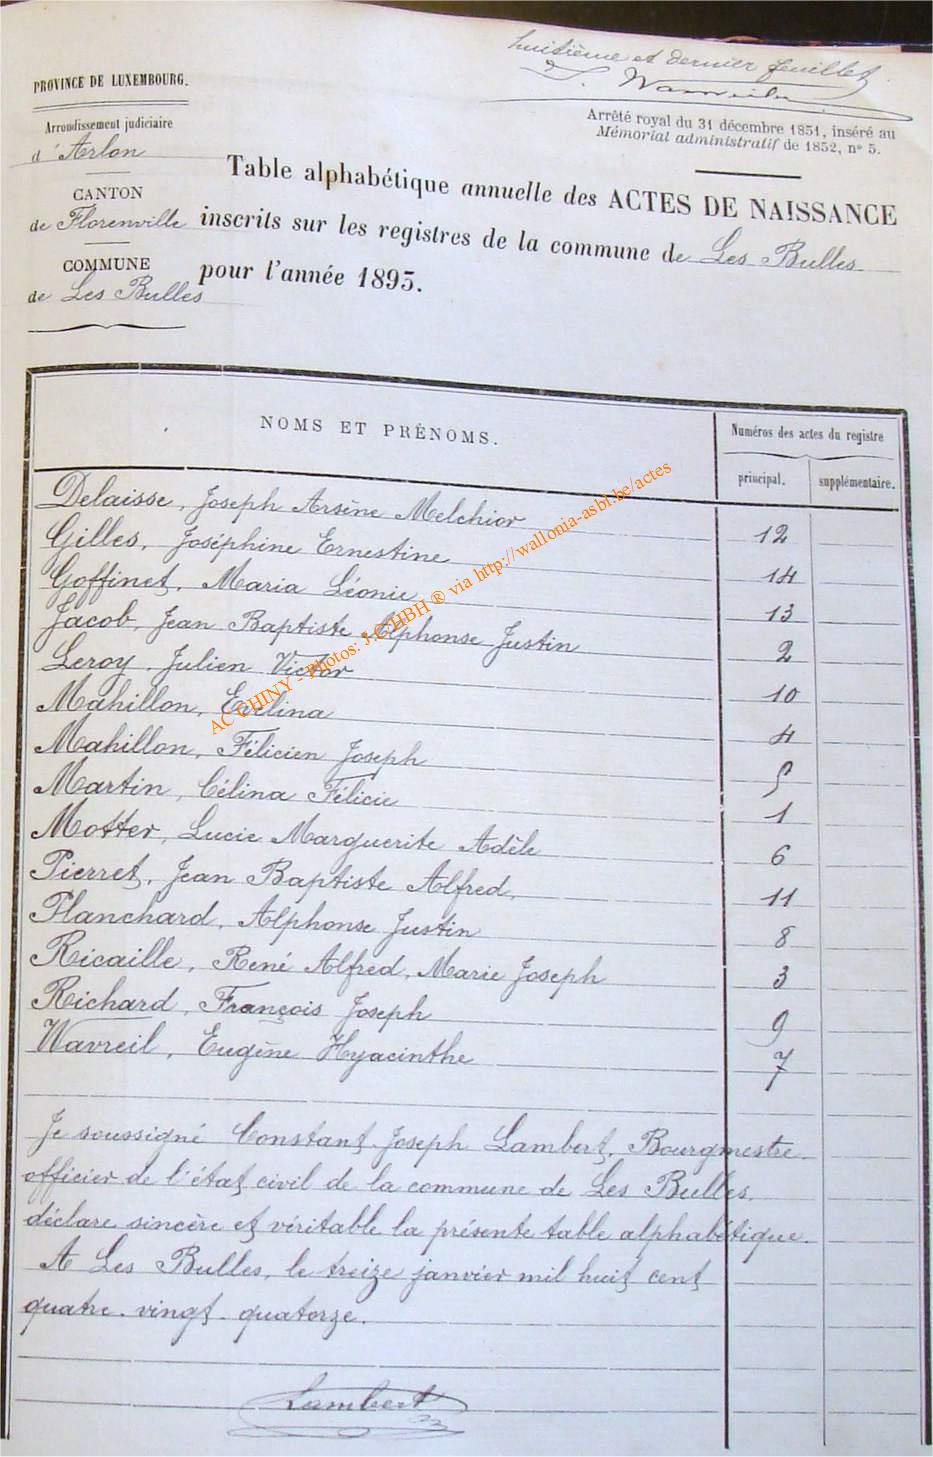 huitième et dernier feuillet
PROVINCE DE LUXEMBOURG.
Arrêté royal du 31 décembre 1851, inséré au
Mémorial administratif de 1852, nº 5.
Arrondissement judiciaire
d'Arlon
CANTON
de Florenville
COMMUNE
de Les Bulles
Table alphabétique annuelle des ACTES DE NAISSANCE
inscrits sur les registres de la commune de Les Bulles
pour l'année 1893.
NOMS ET PRÉNOMS.
Numéros des actes du registre
principal.
supplémentaire.
Delaisse, Joseph Arsène Melchior 12
Gilles, Joséphine Ernestine 14
Goffinet, Maria Léonie 13
Jacob, Jean Baptiste Alphonse Justin 2
Leroy, Julien Victor 10
Mahillon, Evelina 4
Mahillon, Félicien Joseph 5
Martin, Célina Félicie 1
Motter, Lucie Marguerite Adèle 6
Pierret, Jean Baptiste Alfred, 11
Planchard, Alphonse Justin 8
Ricaille, René Alfred, Marie Joseph 3
Richard, François Joseph 9
Wavreil, Eugène Hyacinthe 7
Je soussigné Constant Joseph Lambert, Bourgmestre
officier de l'état civil de la commune de Les Bulles,
déclare sincère et véritable la présente table alphabétique.
A Les Bulles, le treize janvier mil huit cent
quatre-vingt-quatorze.
Lambert
AC CHINY - Photos: J.C.HBH ® via http://wallonia-asbl.be/actes